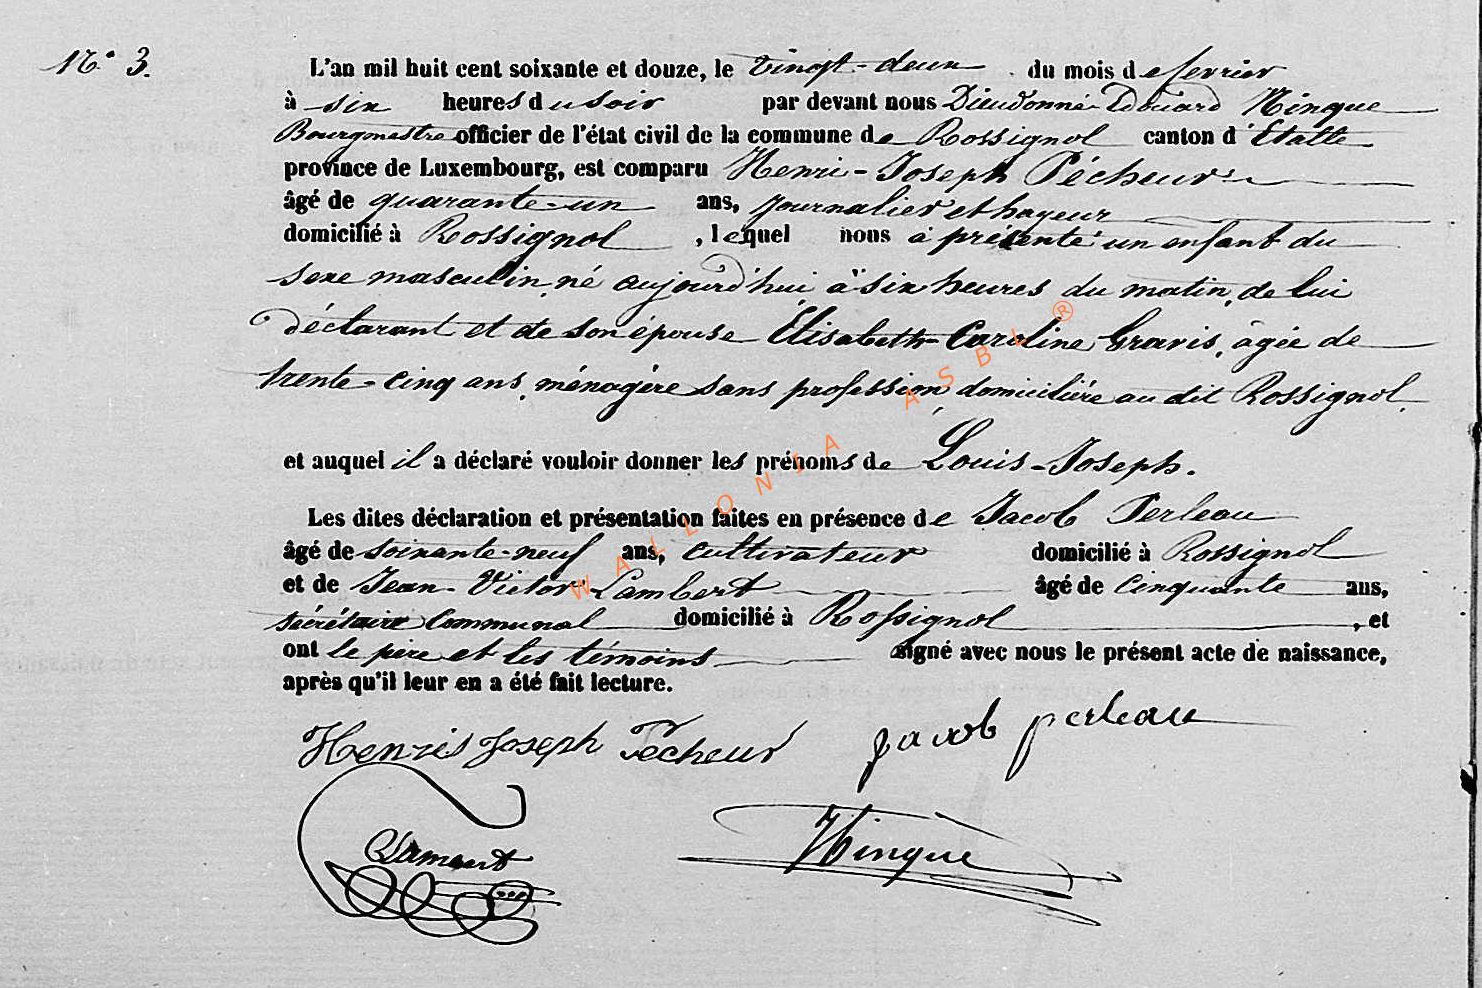 N° 3.
L'an mil huit cent soixante et douze, le vingt-deux du mois de fevrier
à six heures du soir par devant nous Dieudonné Edouard Hinque
Bourgmestre officier de l'état civil de la commune de Rossignol canton d'Etalle
province de Luxembourg, est comparu Henri-Joseph Pécheur
âgé de quarante-un ans, journalier et hayeur
domicilié à Rossignol, lequel nous a présenté un enfant du
sexe masculin, né aujourd'hui à six heures du matin, de lui
déclarant et de son épouse Élisabeth-Caroline Gravis, âgée de
trente-cinq ans, ménagère sans profession, domiciliée au dit Rossignol.
et auquel il a déclaré vouloir donner les prénoms de Louis-Joseph.
Les dites déclaration et présentation faites en présence de Jacob Perleau
âgé de soixante-neuf ans, cultivateur domicilié à Rossignol
et de Jean-Victor Lambert âgé de cinquante ans,
secrétaire communal domicilié à Rossignol, et
ont le père et les témoins signé avec nous le présent acte de naissance,
après qu'il leur en a été fait lecture.
Henri Joseph Pecheur jacob perleau
Hinque
WALLONIA ASBL ®